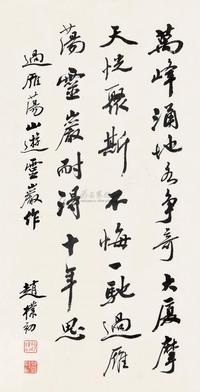 萬峰涌地各爭奇大廈摩
天恍聚斯不悔一馳過雁
蕩靈巖耐得十年思
過雁蕩山遊靈巖作
趙樸初